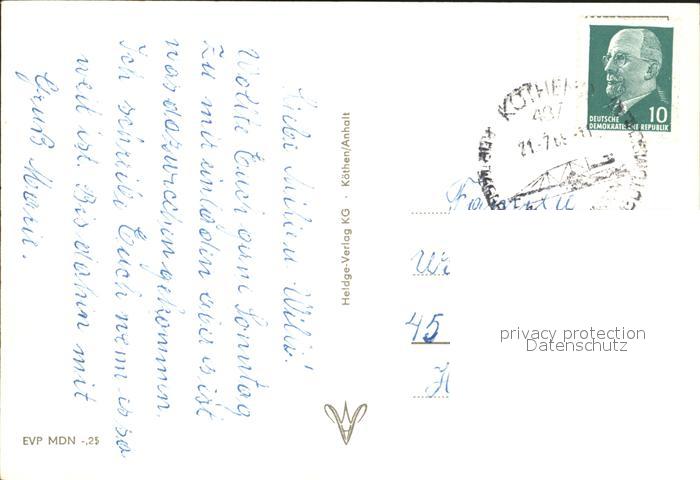 Liebe Willi!
Wollte Euch gern Sonntag
zu mir einladen aber es ist
was dazwischen gekommen.
Ich schreibe Euch wenn es so
weit ist. Bis dahin mit
Gruß Marie.
EVP MDN -,25
Heldge-Verlag KG · Köthen/Anhalt
KÖTHEN
437
21.-7.65.-11
DEUTSCHE
DEMOKRATISCHE REPUBLIK
10
45
privacy protection
Datenschutz